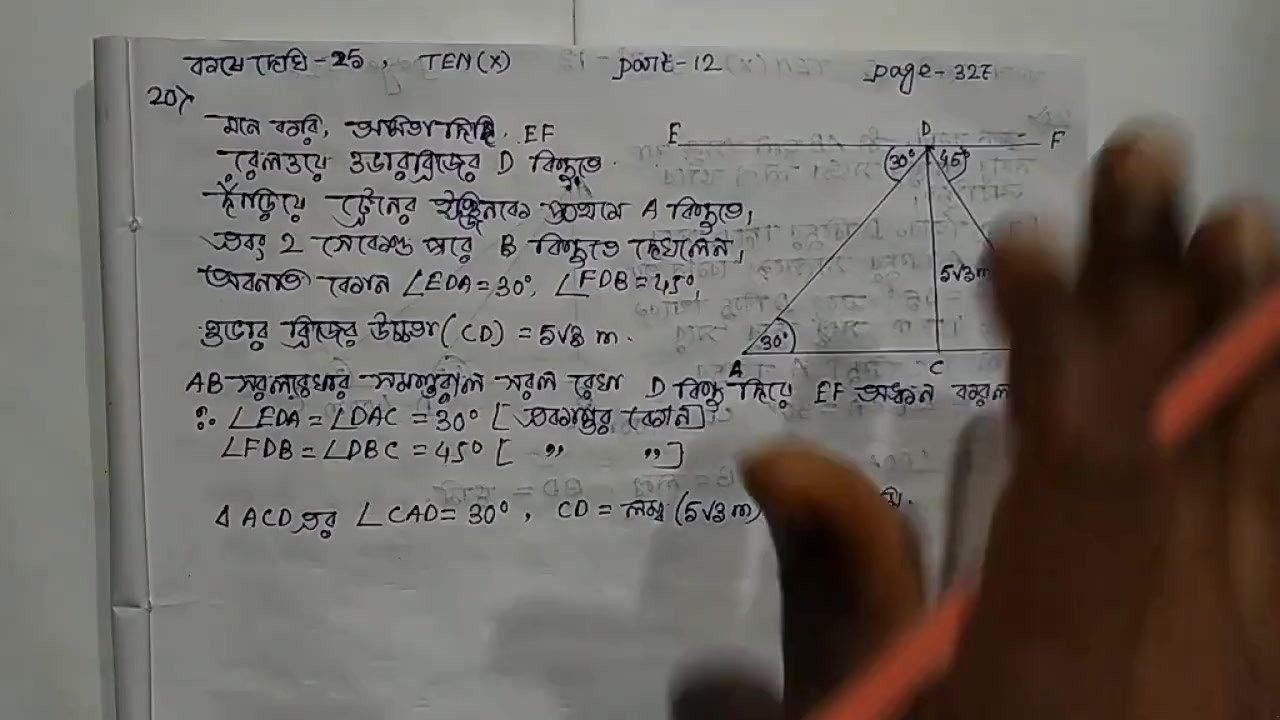 কষে দেখি - 25, TEN(X) part-12 page- 327
20>
মনে করি, অমিতাদিদি EF
রেলওয়ে ওভারব্রিজের D বিন্দুতে
দাঁড়িয়ে ট্রেনের ইঞ্জিনকে প্রথমে A বিন্দুতে,
এবং 2 সেকেণ্ড পরে B বিন্দুতে দেখলেন,
অবনতি কোন ∠EDA = 30°, ∠FDB = 45°,
ওভার ব্রিজের উচ্চতা (CD) = 5√3 m.
AB সরলরেখার সমান্তরাল সরল রেখা D বিন্দু দিয়ে EF অঙ্কন করল
∴ ∠EDA = ∠DAC = 30° [ একান্তর কোন]
∠FDB = ∠DBC = 45° [ " " ]
Δ ACD এর ∠CAD = 30°, CD = লম্ব (5√3 m)
E D F
30° 45°
5√3 m
30°
A C